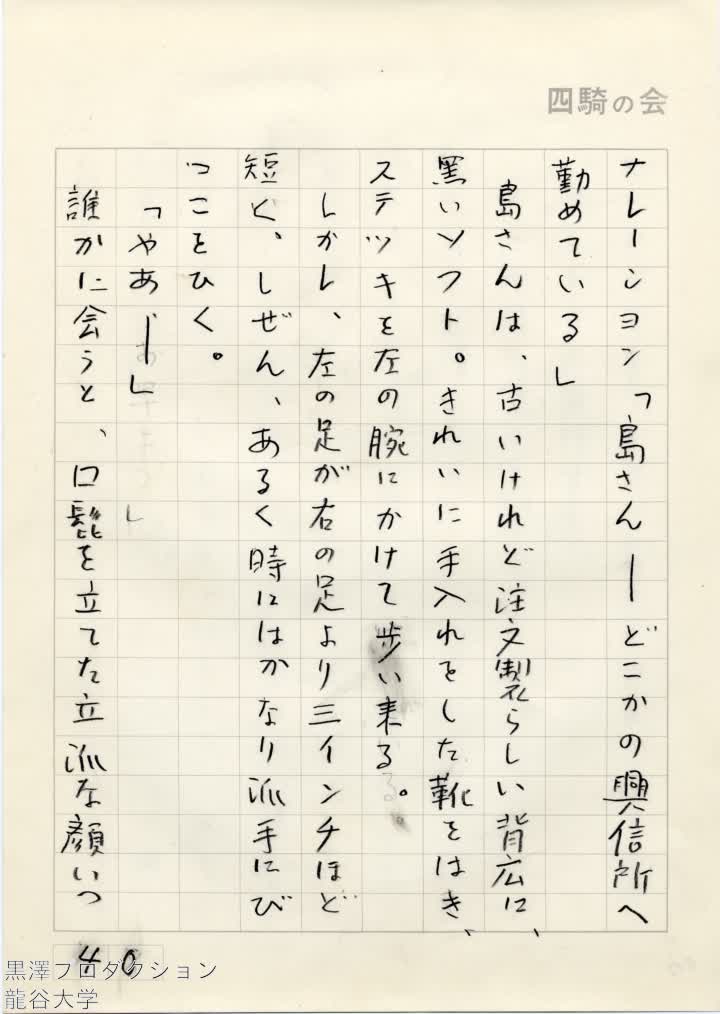 四騎の会
ナレーション「島さん――どこかの興信所へ
勤めている」
島さんは、古いけれど注文製らしい背広に、
黒いソフト。きれいに手入れをした靴をはき、
ステッキを左の腕にかけて歩い来る。
しかし、左の足が右の足より三インチほど
短く、しぜん、あるく時にはかなり派手にび
っこをひく。
「やあ！」
誰かに会うと、口髭を立てた立派な顔いつ
40
黒澤プロダクション
龍谷大学